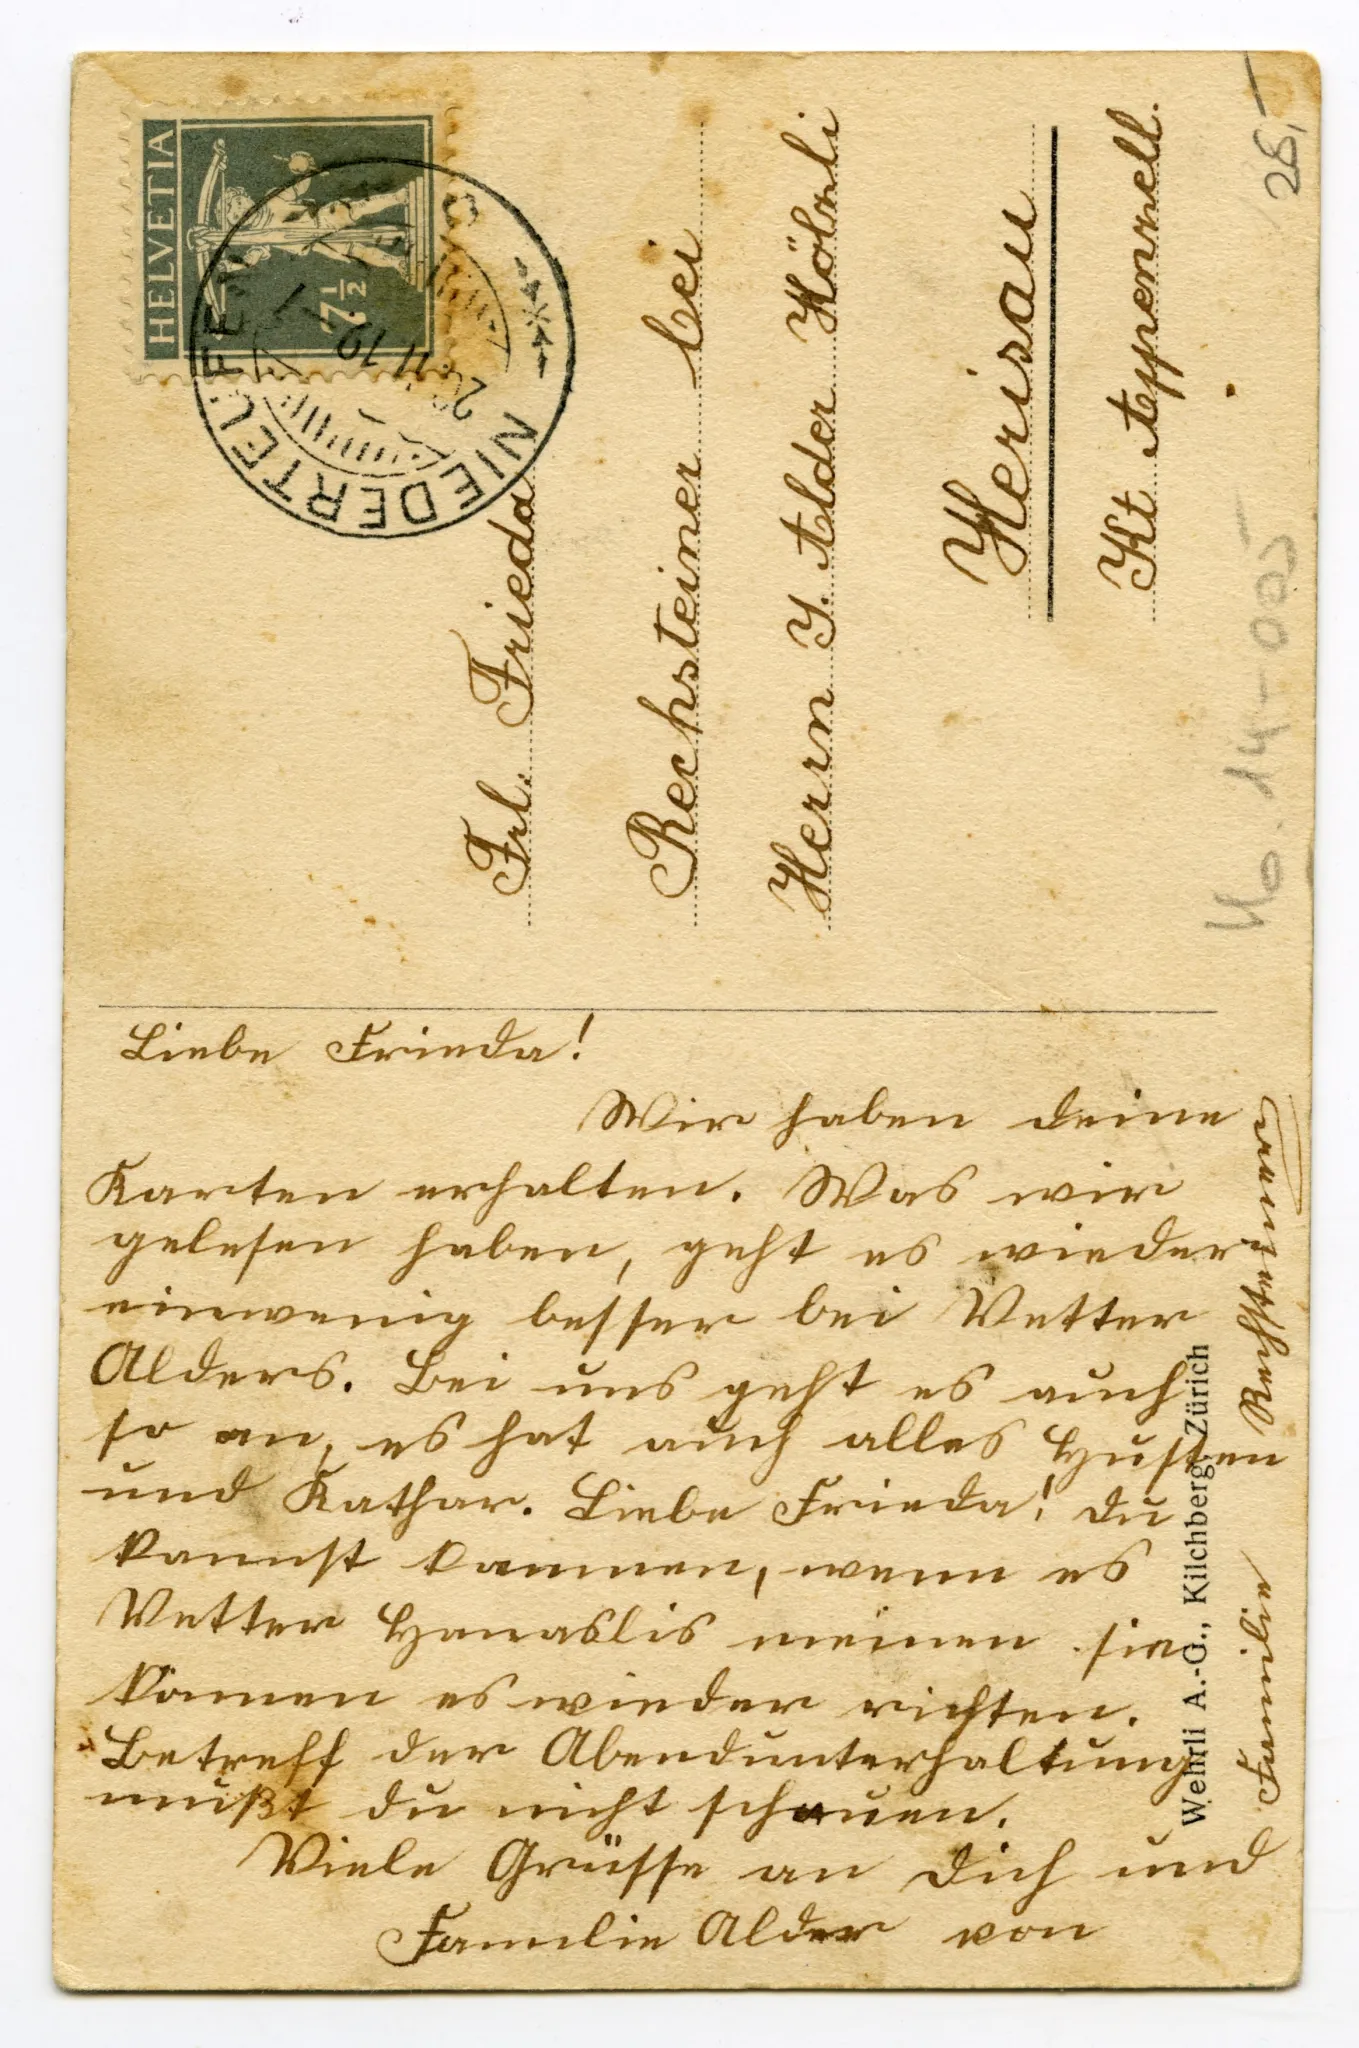 HELVETIA
7½
NIEDERTEUFEN
Frl. Frieda
Rechsteiner bei
Herrn J. Alder Hölzli
Herisau
Kt Appenzell.
28,–
Ho. 14-005
Liebe Frieda!
Wir haben deine
Karten erhalten. Was wir
gelesen haben, geht es wieder
einwenig besser bei Vetter
Alders. Bei uns geht es auch
so an, es hat auch alles Husten
und Kathar. Liebe Frieda! du
kannst kommen, wenn es
Vetter meinen sie
können es wieder richten.
Betreff der Abendunterhaltung
mußt du nicht schauen.
Viele Grüsse an Dich und
Familie Alder von
Familie Rechsteiner
Wehrli A.-G., Kilchberg, Zürich